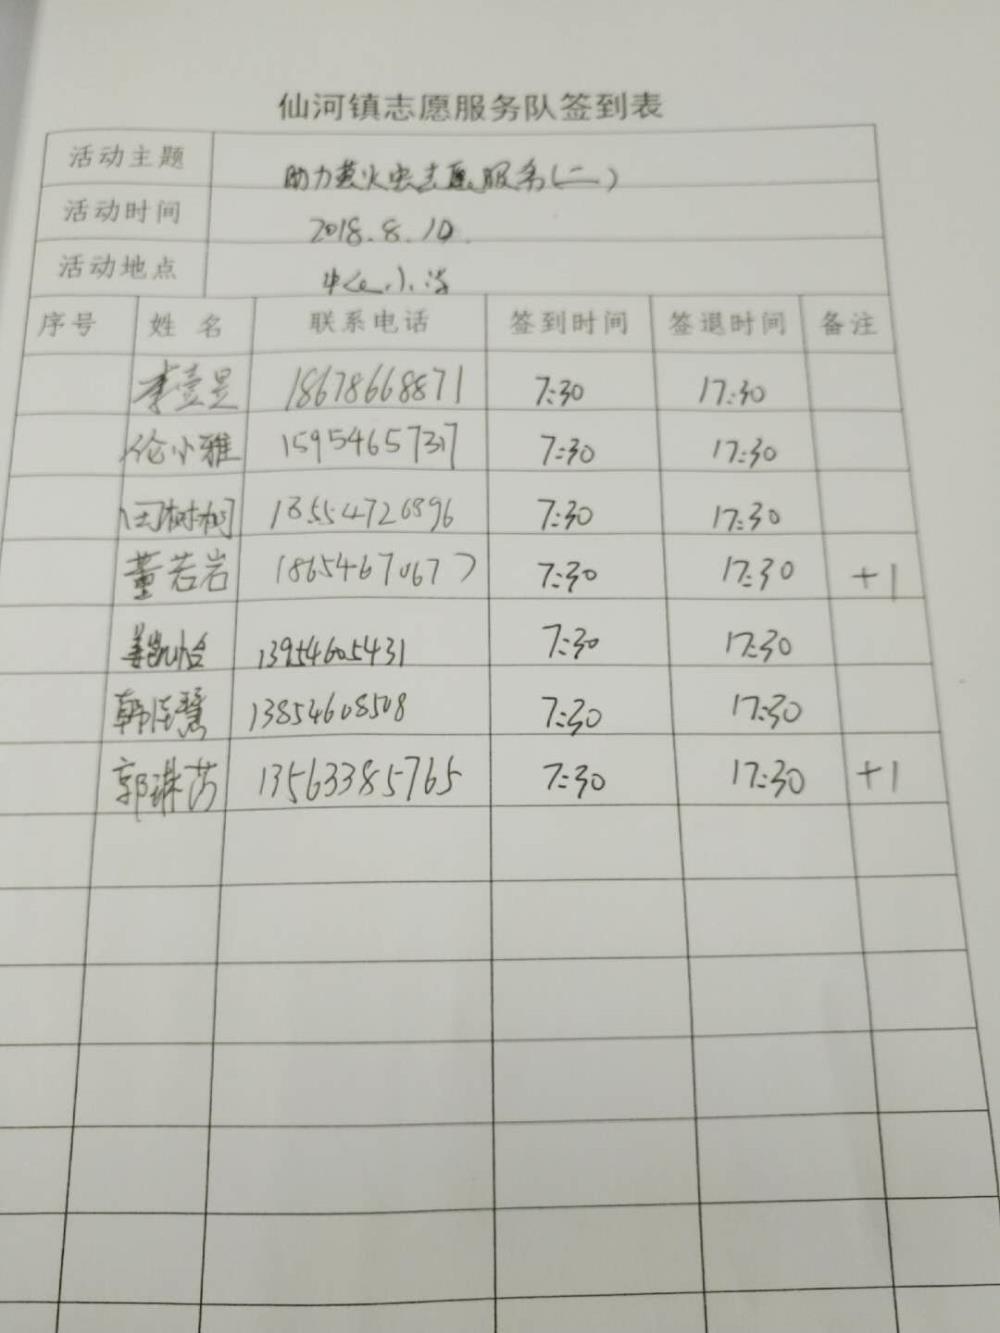 仙河镇志愿服务队签到表
活动主题 助力萤火虫志愿服务(二)
活动时间 2018.8.10
活动地点 中心小学
序号 姓名 联系电话 签到时间 签退时间 备注
李壹昱 18678668871 7:30 17:30
伦小雅 15954657317 7:30 17:30
闫树树 13554726896 7:30 17:30
董若岩 18654670677 7:30 17:30 +1
姜凯怡 13954605431 7:30 17:30
韩佳慧 13854608508 7:30 17:30
郭琳芮 13563385765 7:30 17:30 +1